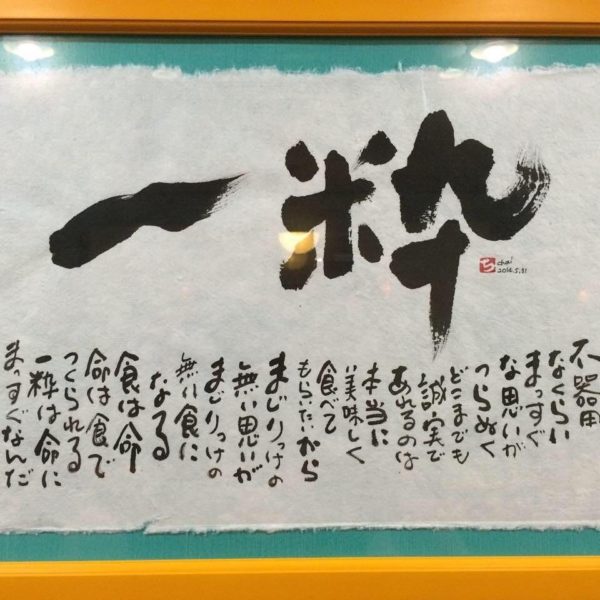 一粋
ち
chai
2014.5.31
不器用
なくらい
まっすぐ
な思いが
つらぬく
どこまでも
誠実で
あれるのは
本当に
美味しく
食べて
もらいたいから
まじりっけの
無い思いが
まじりっけの
無い食に
なる
食は命
命は食で
つくられる
一粋は命に
まっすぐなんだ